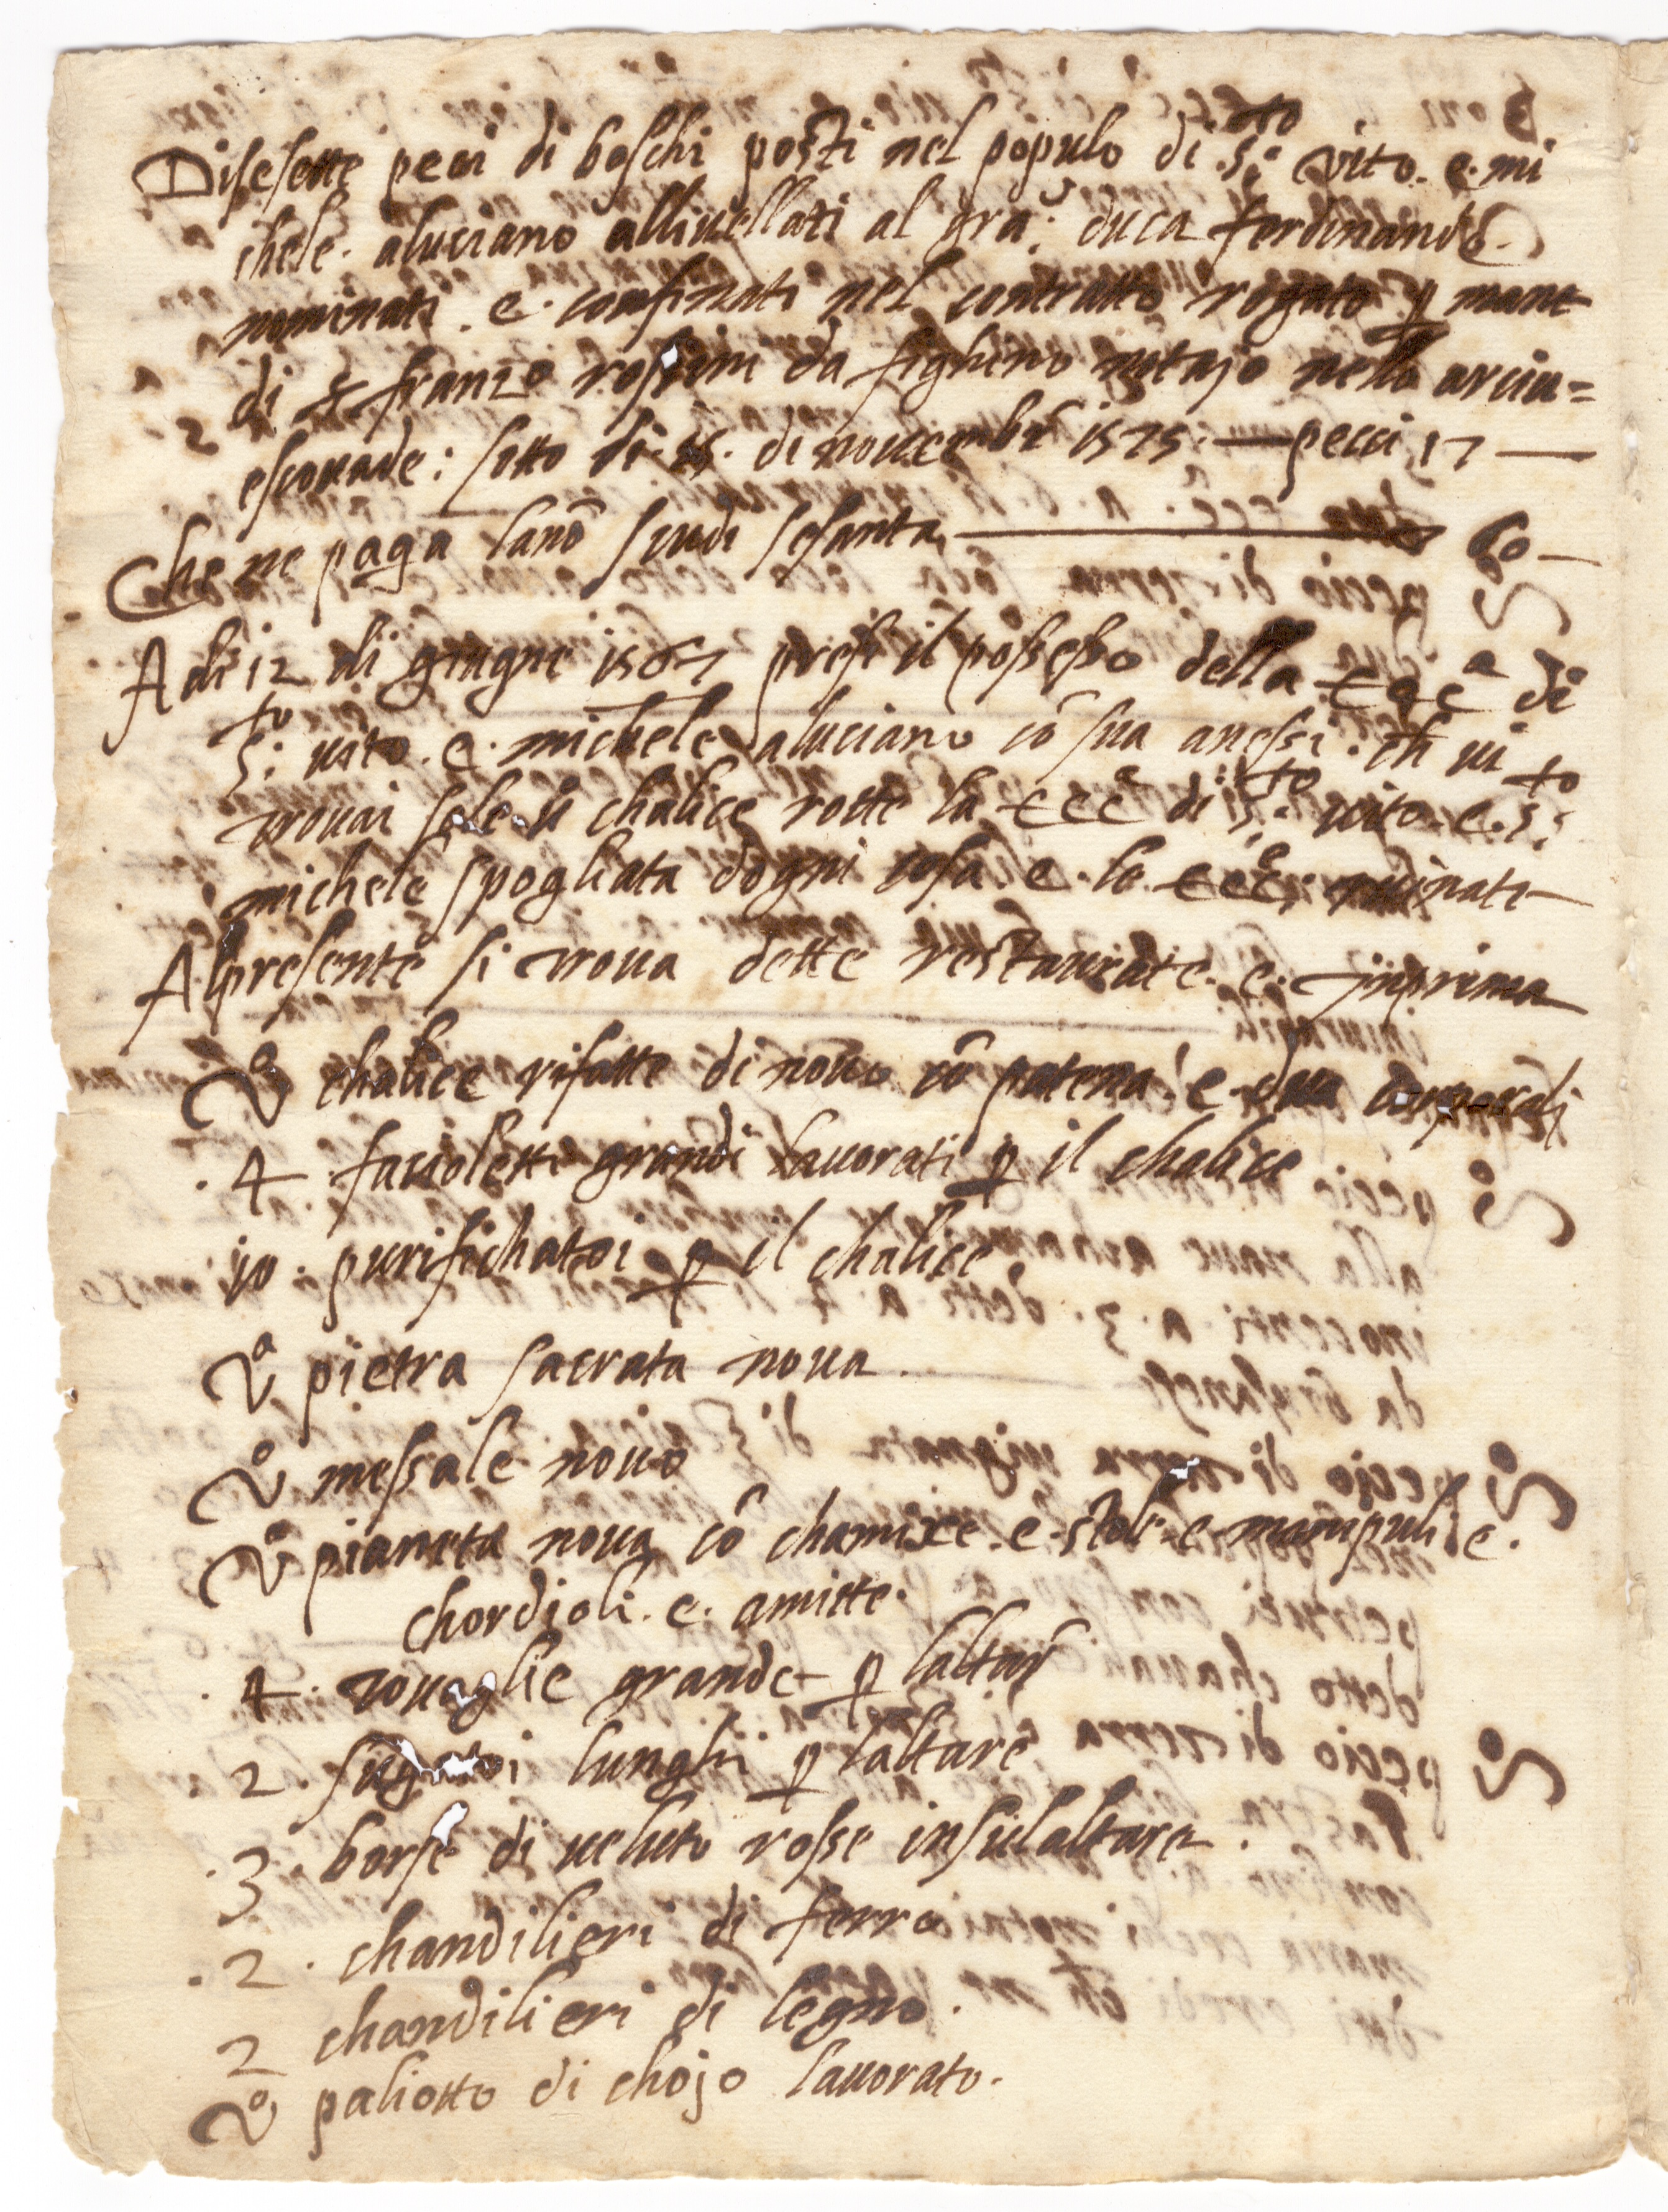 Disesette pezi di boschi posti nel populo di S.to vito. e. mi
chele. aluciano allivellati al gra: duca ferdinando.
nominati. e. confinati nel contratto rogato p mane
di franzo da fighino notajo nello arciu=
escouade: sotto di. di nouembr 1575. — pecci 17 —
Che ne paga lanō scudi sesanta — 60 —
A di 12 di giugne 1567 presi il possesso della eccª di
S.to uito. e. michele aluciano cō sua anessi. ch ui
trouai sole ū chalice rotte la eccª di S.to uito. e. S.to
michele spogliata dogni cosa. e. le ecce: ruinate
Alpresente si troua dette restaurate. e. inprima
Vº chalice rifatte di nouo cō patena. e. dua corporali
. 4 . faciolette grandi lauorati p il chalice
10 . purifichatoi p il chalice
Vª pietra sacrata noua.
Vº messale nouo
Vª pianeta noua cō chamixe. e. stole. e. manipuli e.
chordioli. e. amitte.
. 4 . touaglie grande p laltar
. 2 . sugatoi lunghi p laltare
. 3 . borse di ueluto rosse insulaltare.
. 2 . chandilieri di ferro
2 chandilieri di legno.
Vº paliotto di chojo lauorato.